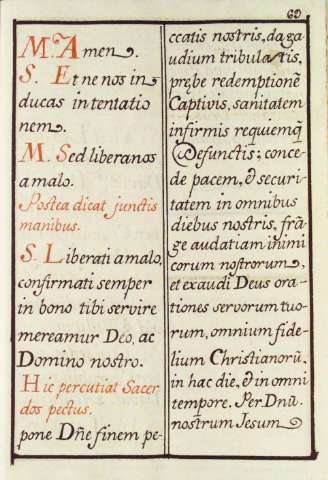 69
M. Amen.
S. Et ne nos in
ducas in tentatio
nem.
M. Sed libera nos
a malo.
Postea dicat junctis
manibus.
S. Liberati a malo,
confirmati semper
in bono tibi servire
mereamur Deo, ac
Domino nostro.
Hic percutiat Sacer
dos pectus.
pone Dñe finem pe-
ccatis nostris, da ga
udium tribulatis,
prębe redemptionē
Captivis, sanitatem
infirmis requiemq̃
Defunctis; conce-
de pacem, & securi-
tatem in omnibus
diebus nostris, frā
ge audatiam inimi
corum nostrorum,
et exaudi Deus ora-
tiones servorum tuo-
rum, omnium fide-
lium Christianorũ,
in hac die, & in omni
tempore. Per Dnũ.
nostrum Jesum